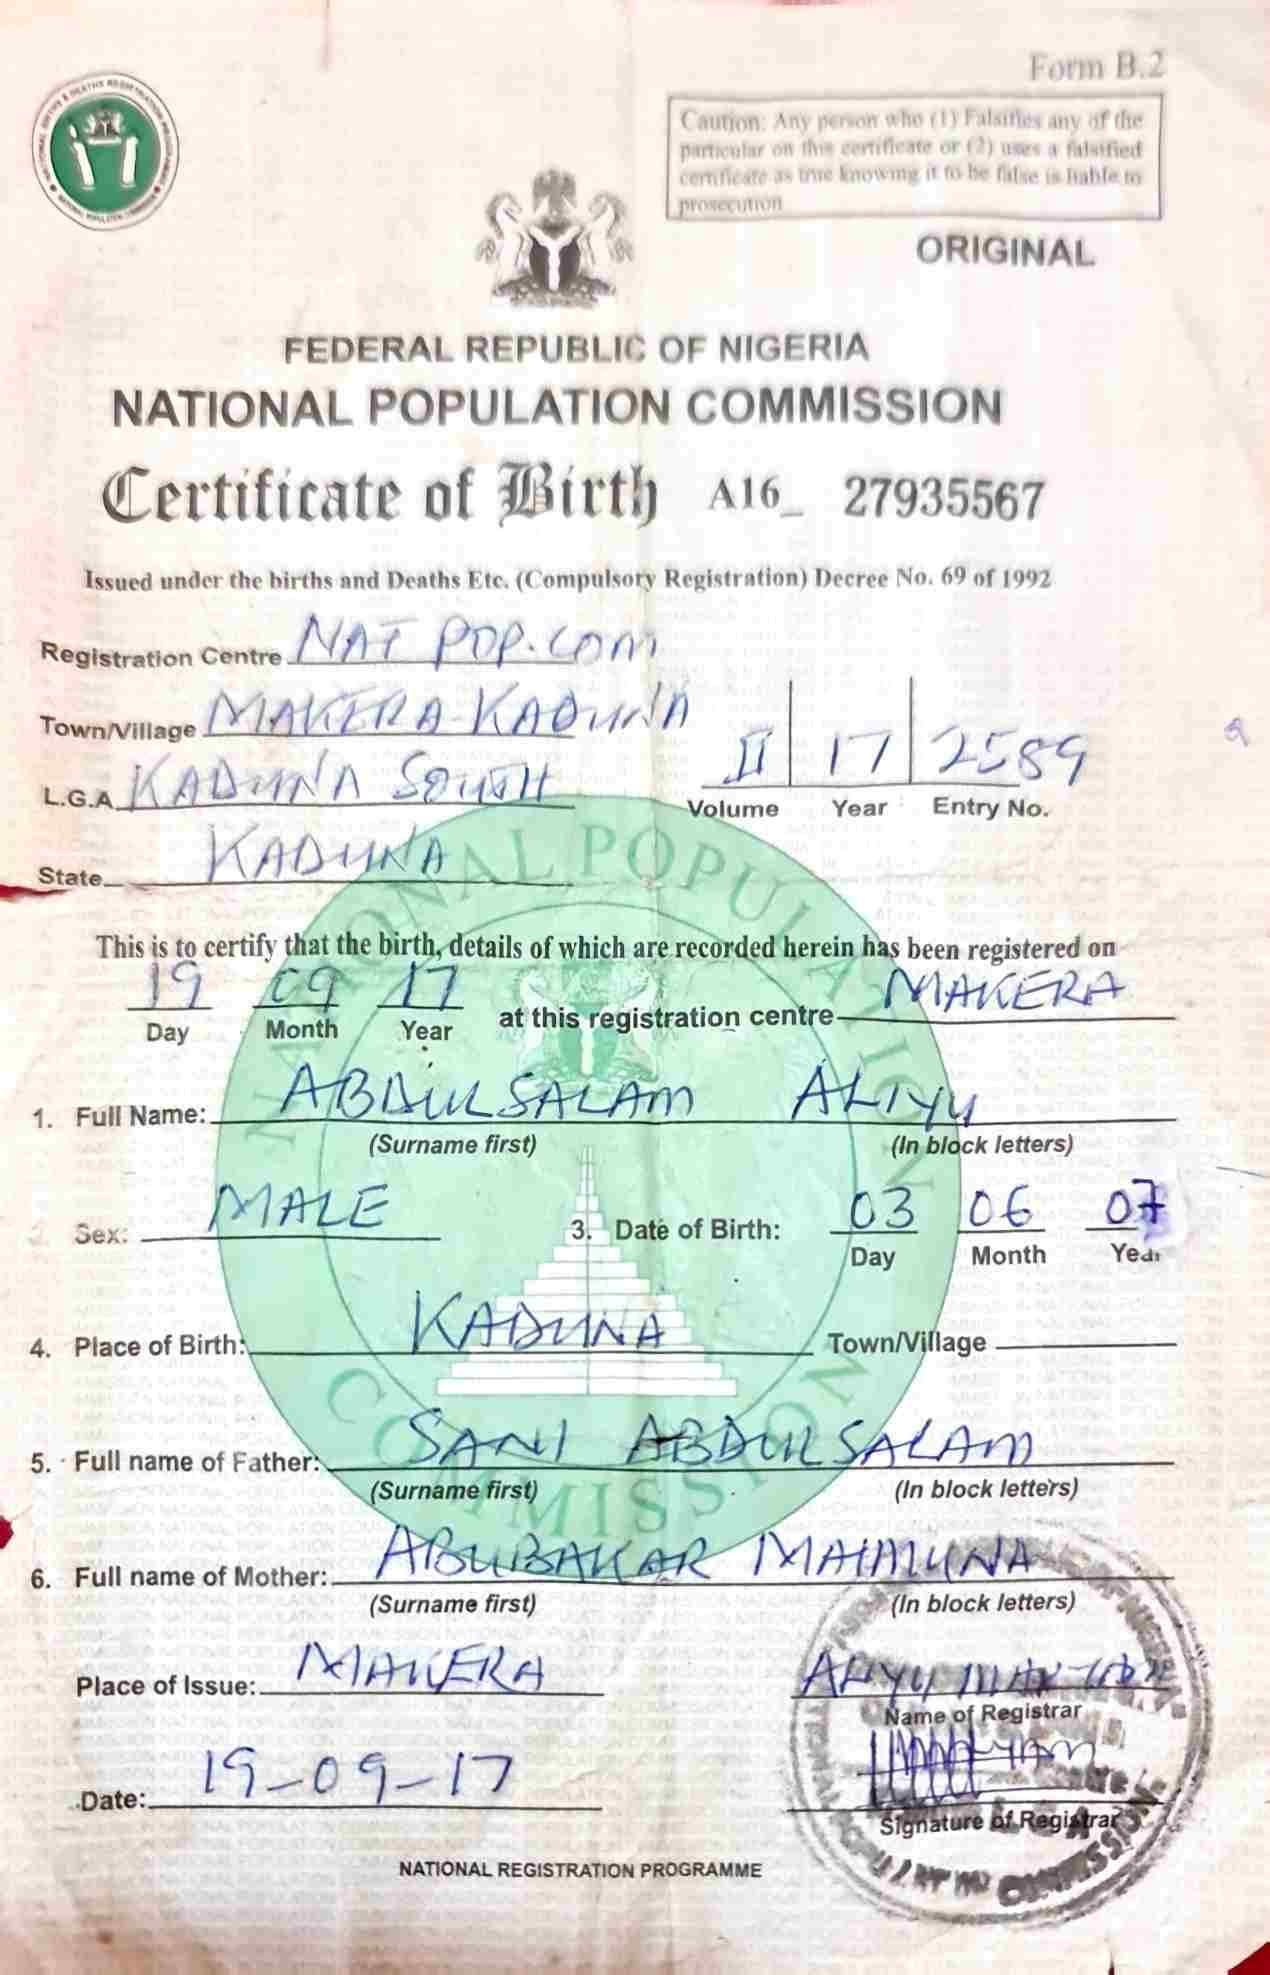 Form B.2
Caution: Any person who (1) Falsifies any of the
particular on this certificate or (2) uses a falsified
certificate as true knowing it to be false is liable to
prosecution
ORIGINAL
FEDERAL REPUBLIC OF NIGERIA
NATIONAL POPULATION COMMISSION
Certificate of Birth A16_ 27935567
Issued under the births and Deaths Etc. (Compulsory Registration) Decree No. 69 of 1992
Registration Centre NAT POP. COM
Town/Village MAKERA-KADUNA
II 17 2589
L.G.A KADUNA SOUTH
Volume Year Entry No.
State KADUNA
This is to certify that the birth, details of which are recorded herein has been registered on
19 09 17 at this registration centre MAKERA
Day Month Year
1. Full Name: ABDULSALAM ALIYU
(Surname first) (In block letters)
Sex: MALE 3. Date of Birth: 03 06 07
Day Month Year
4. Place of Birth: KADUNA Town/Village
5. Full name of Father: SANI ABDULSALAM
(Surname first) (In block letters)
6. Full name of Mother: ABUBAKAR MAIMUNA
(Surname first) (In block letters)
Place of Issue: MAKERA
ALIYU
Name of Registrar
Date: 19-09-17
Signature of Registrar
NATIONAL REGISTRATION PROGRAMME
NATIONAL POPULATION COMMISSION